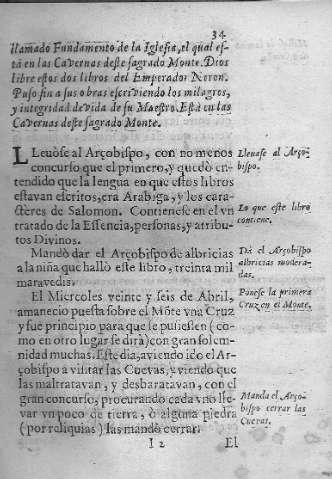 34
llamado Fundamento de la Iglesia, el qual es-
tà en las Cavernas deste sagrado Monte. Dios
libre estos dos libros del Emperador Neron.
Puso fin a sus obras escriviendo los milagros,
y integridad de vida de su Maestro. Està en las
Cavernas deste sagrado Monte.
LLevòse al Arçobispo, con no menos
concurso que el primero, y quedò en-
tendido que la lengua en que estos libros
estavan escritos, era Arabiga, y los cara-
cteres de Salomon. Contienese en el vn
tratado de la Essencia, personas, y atribu-
tos Divinos.
Mandò dar el Arçobispo de albricias
a la niña que hallò este libro, treinta mil
maravedis.
El Miercoles veinte y seis de Abril,
amanecio puesta sobre el Mõte vna Cruz
y fue principio para que se pusiessen (co-
mo en otro lugar se dirà) con gran solem-
nidad muchas. Este dia, aviendo ido el Ar-
çobispo a visitar las Cuevas, y viendo que
las maltratavan, y desbaratavan, con el
gran concurso, procurando cada vno lle-
var vn poco de tierra, ò alguna piedra
(por reliquias) las mandò cerrar.
I 2 El
Llevase al Arço-
bispo.
Lo que este libro
contiene.
Dà el Arçobispo
albricias modera-
das.
Ponese la primera
Cruz en el Monte.
Manda el Arço-
bispo cerrar las
Cuevas.